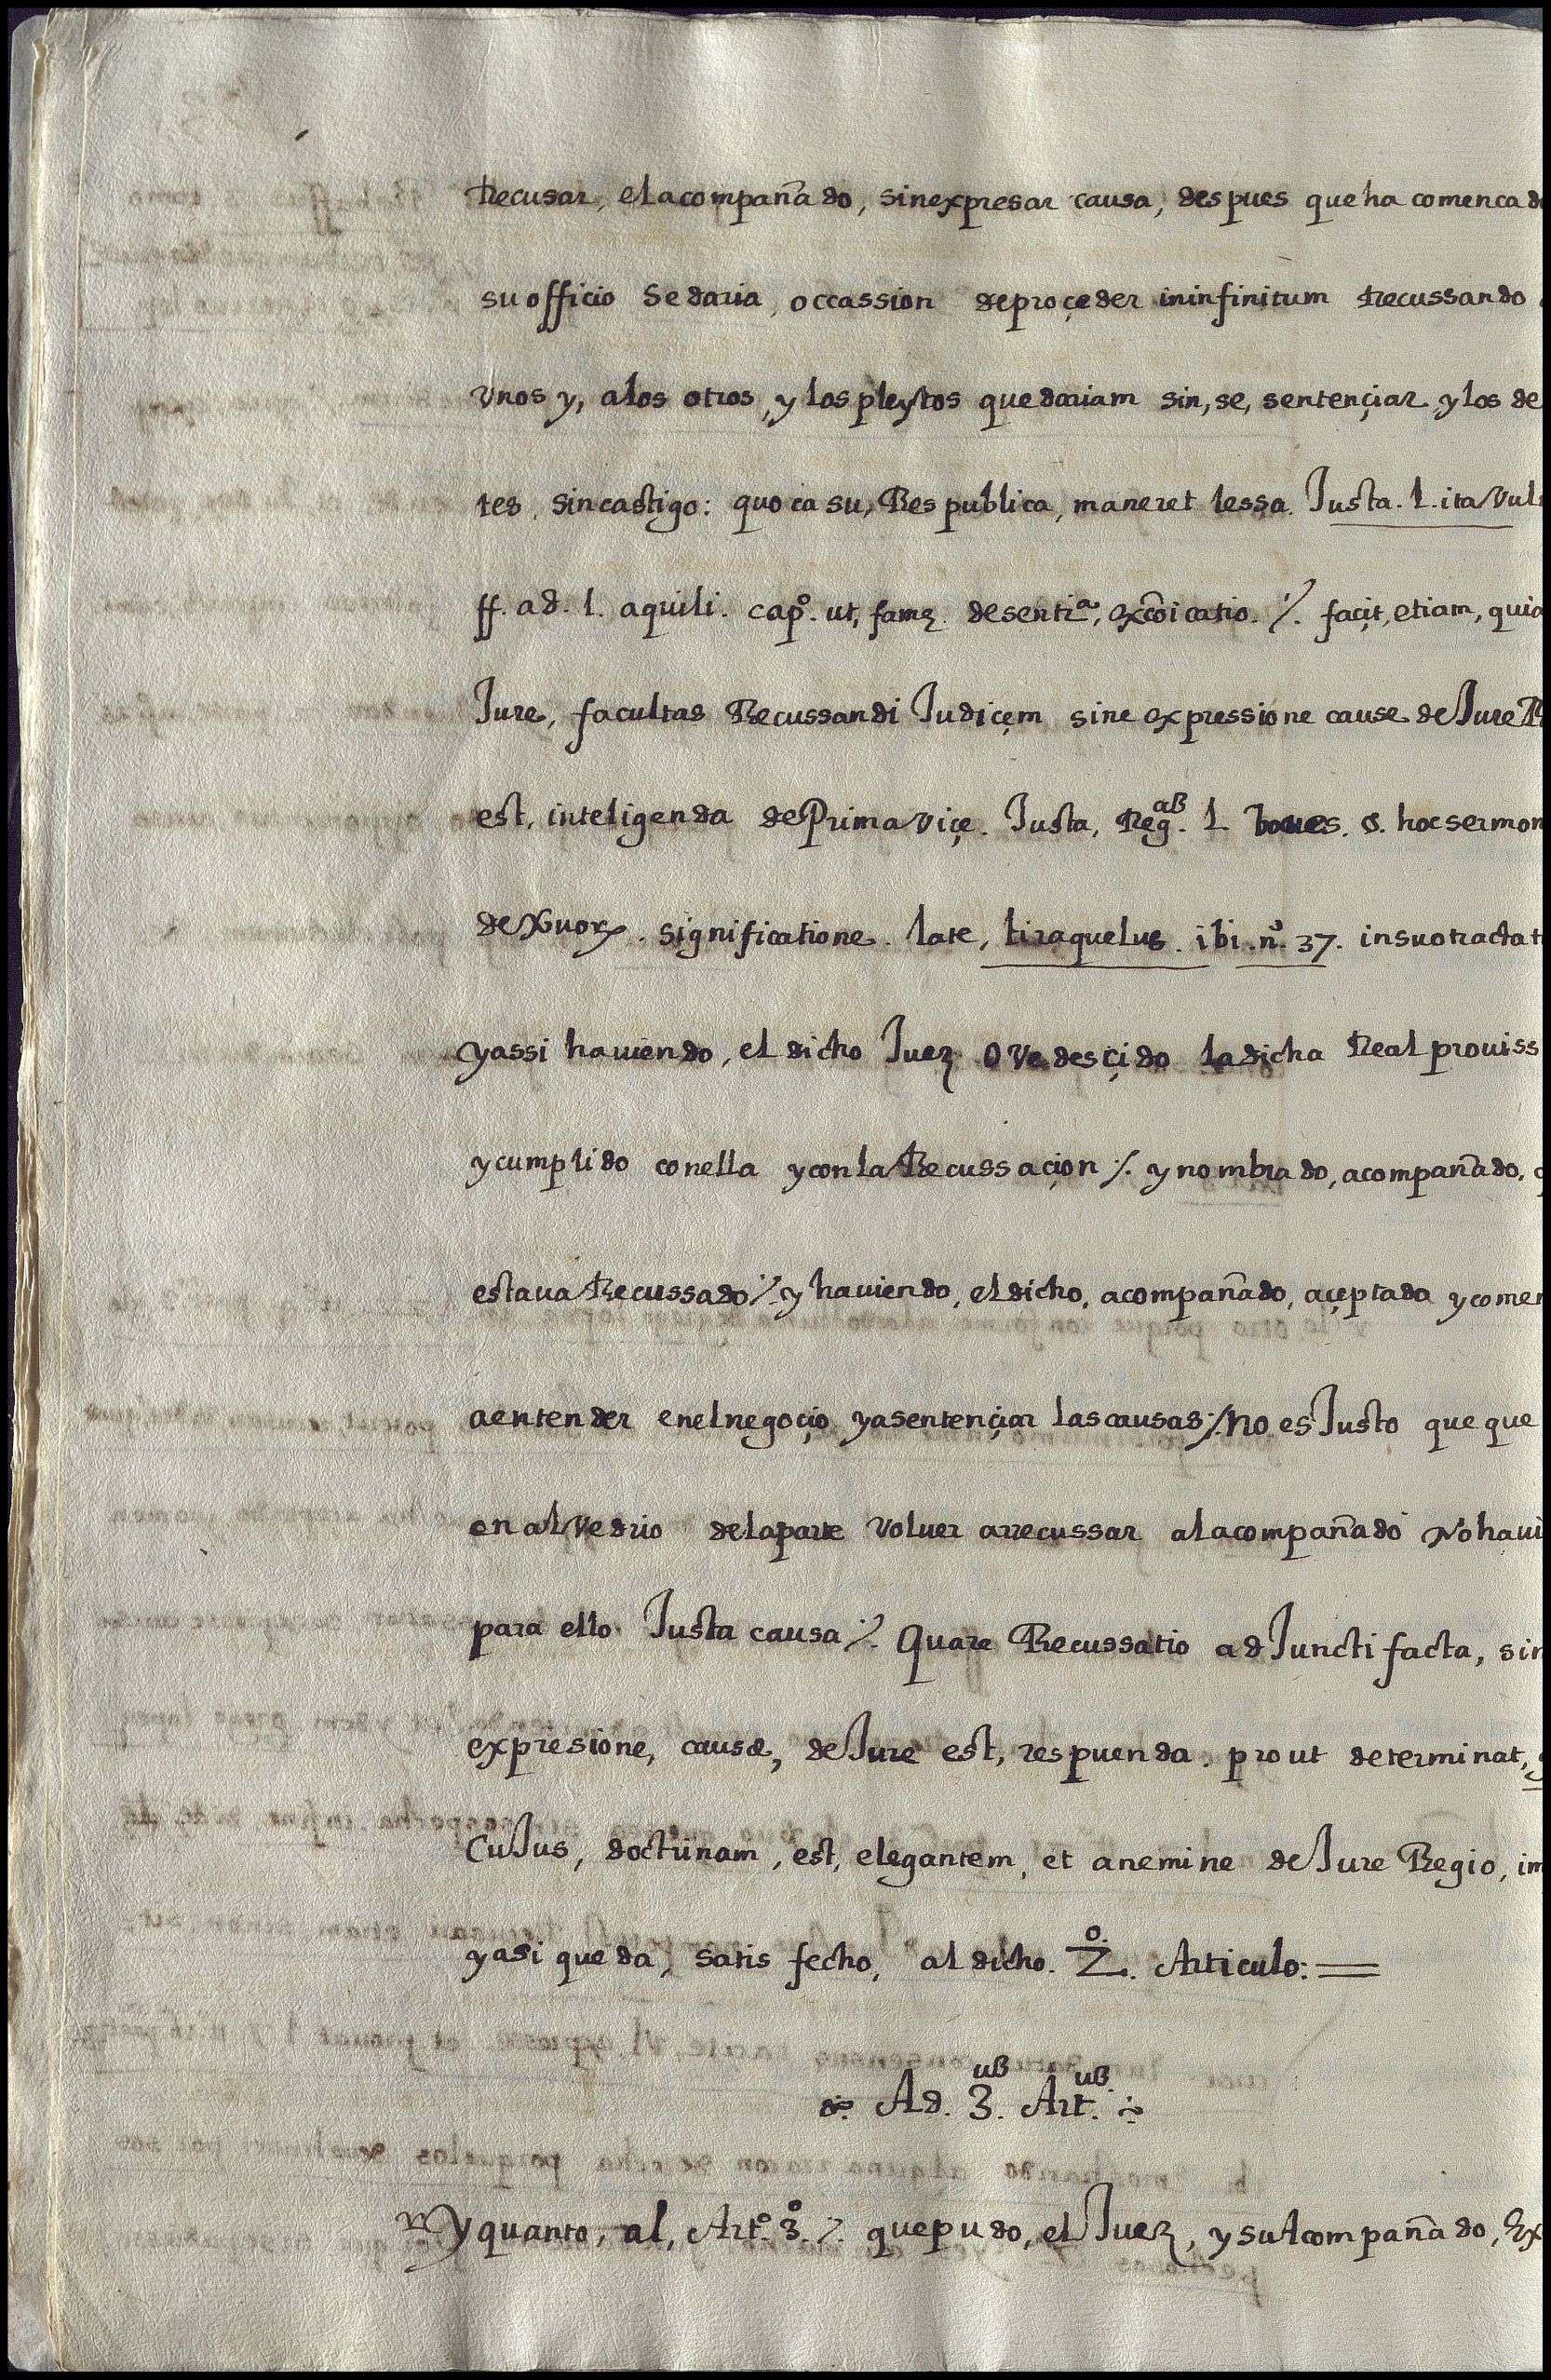 Recusar, el acompañado, sin expresar causa, despues que ha comencad
su officio se daria, occassion de proçeder in infinitum Recussando
vnos y, a los otros, y los pleytos quedariam sin, se, sentençiar, y los de
tes, sin castigo: quo casu, Respublica, maneret lessa. Justa. l. ita Vul
ff. ad. l. aquili. capº. ut, famȩ. de sentiª, excõicatio. ./. façit, etiam, quia
Jure, facultas Recussandi Judiçem sine expressione cause de Jure
est, inteligenda de Prima viçe. Justa, Reg.ab l. boues. §. hoc sermon
de significatione. late, tiraquelus. ibi. nº. 37. in suo tractat
y assi hauiendo, el dicho Juez ovedesçido la dicha Real prouiss
y cumplido con ella y con la Recussaçion ./. y nombrado, acompañado,
estaua Recussado ./. y hauiendo, el dicho, acompañado, açeptada y comen
a entender en el negoçio, y a sentençiar las causas ./. no es Justo que que
en alvedrio de la parte voluer arrecussar al acompañado no haui
para ello Justa causa ./. Quare Recussatio ad Juncti facta, sin
expresione, causæ, de Jure est, respuenda. prout determinat,
CuJus, doctrinam, est, elegantem, et a nemine de Jure Regio, im
y asi queda, satisfecho, al dicho. 2.º Articulo: =
Ad. 3.uB Art.uB
Y quanto, al, Artº. 3º. ./. que pudo, el Juez, y su Acompañado, Ex